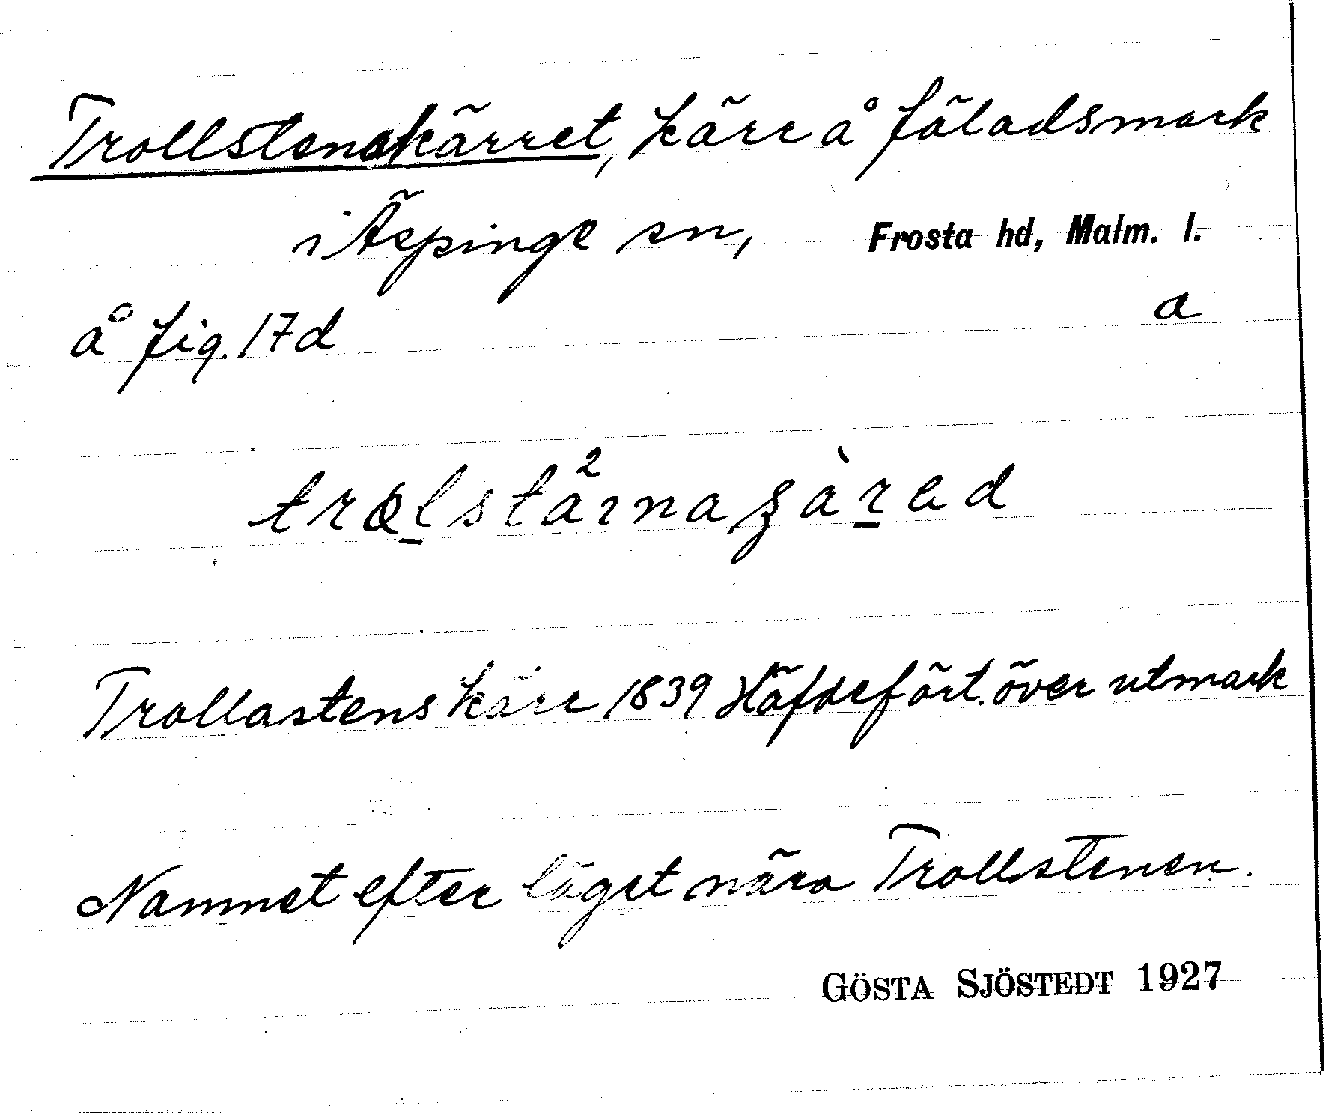 Trollstenakärret, kärr å fäladsmark
i Äspinge sn, Frosta hd, Malm. l.
å fig. 17d a
Trollastens kärr 1839 Häfdefört. över utmark
Namnet efter läget nära Trollstenen.
GÖSTA SJÖSTEDT 1927